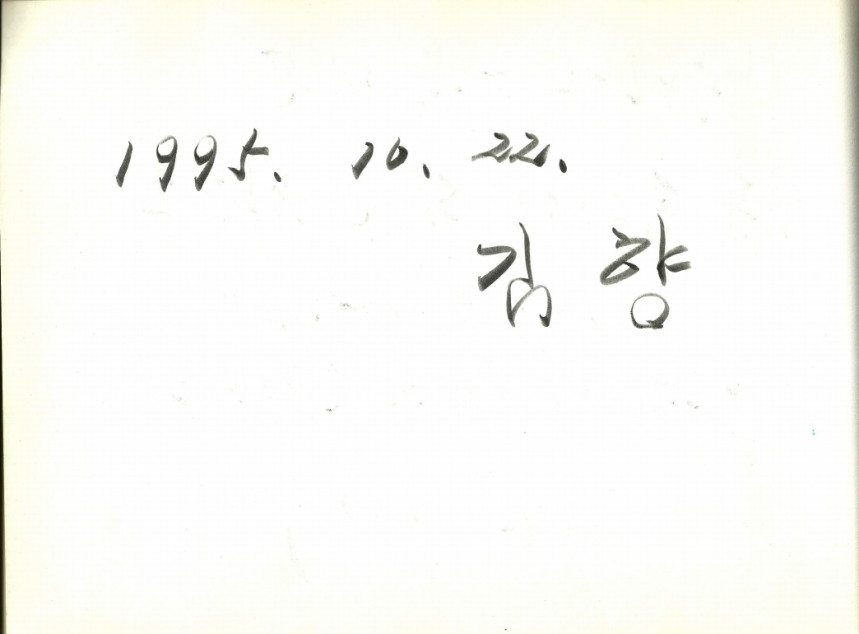 1995. 10. 22.
김 향